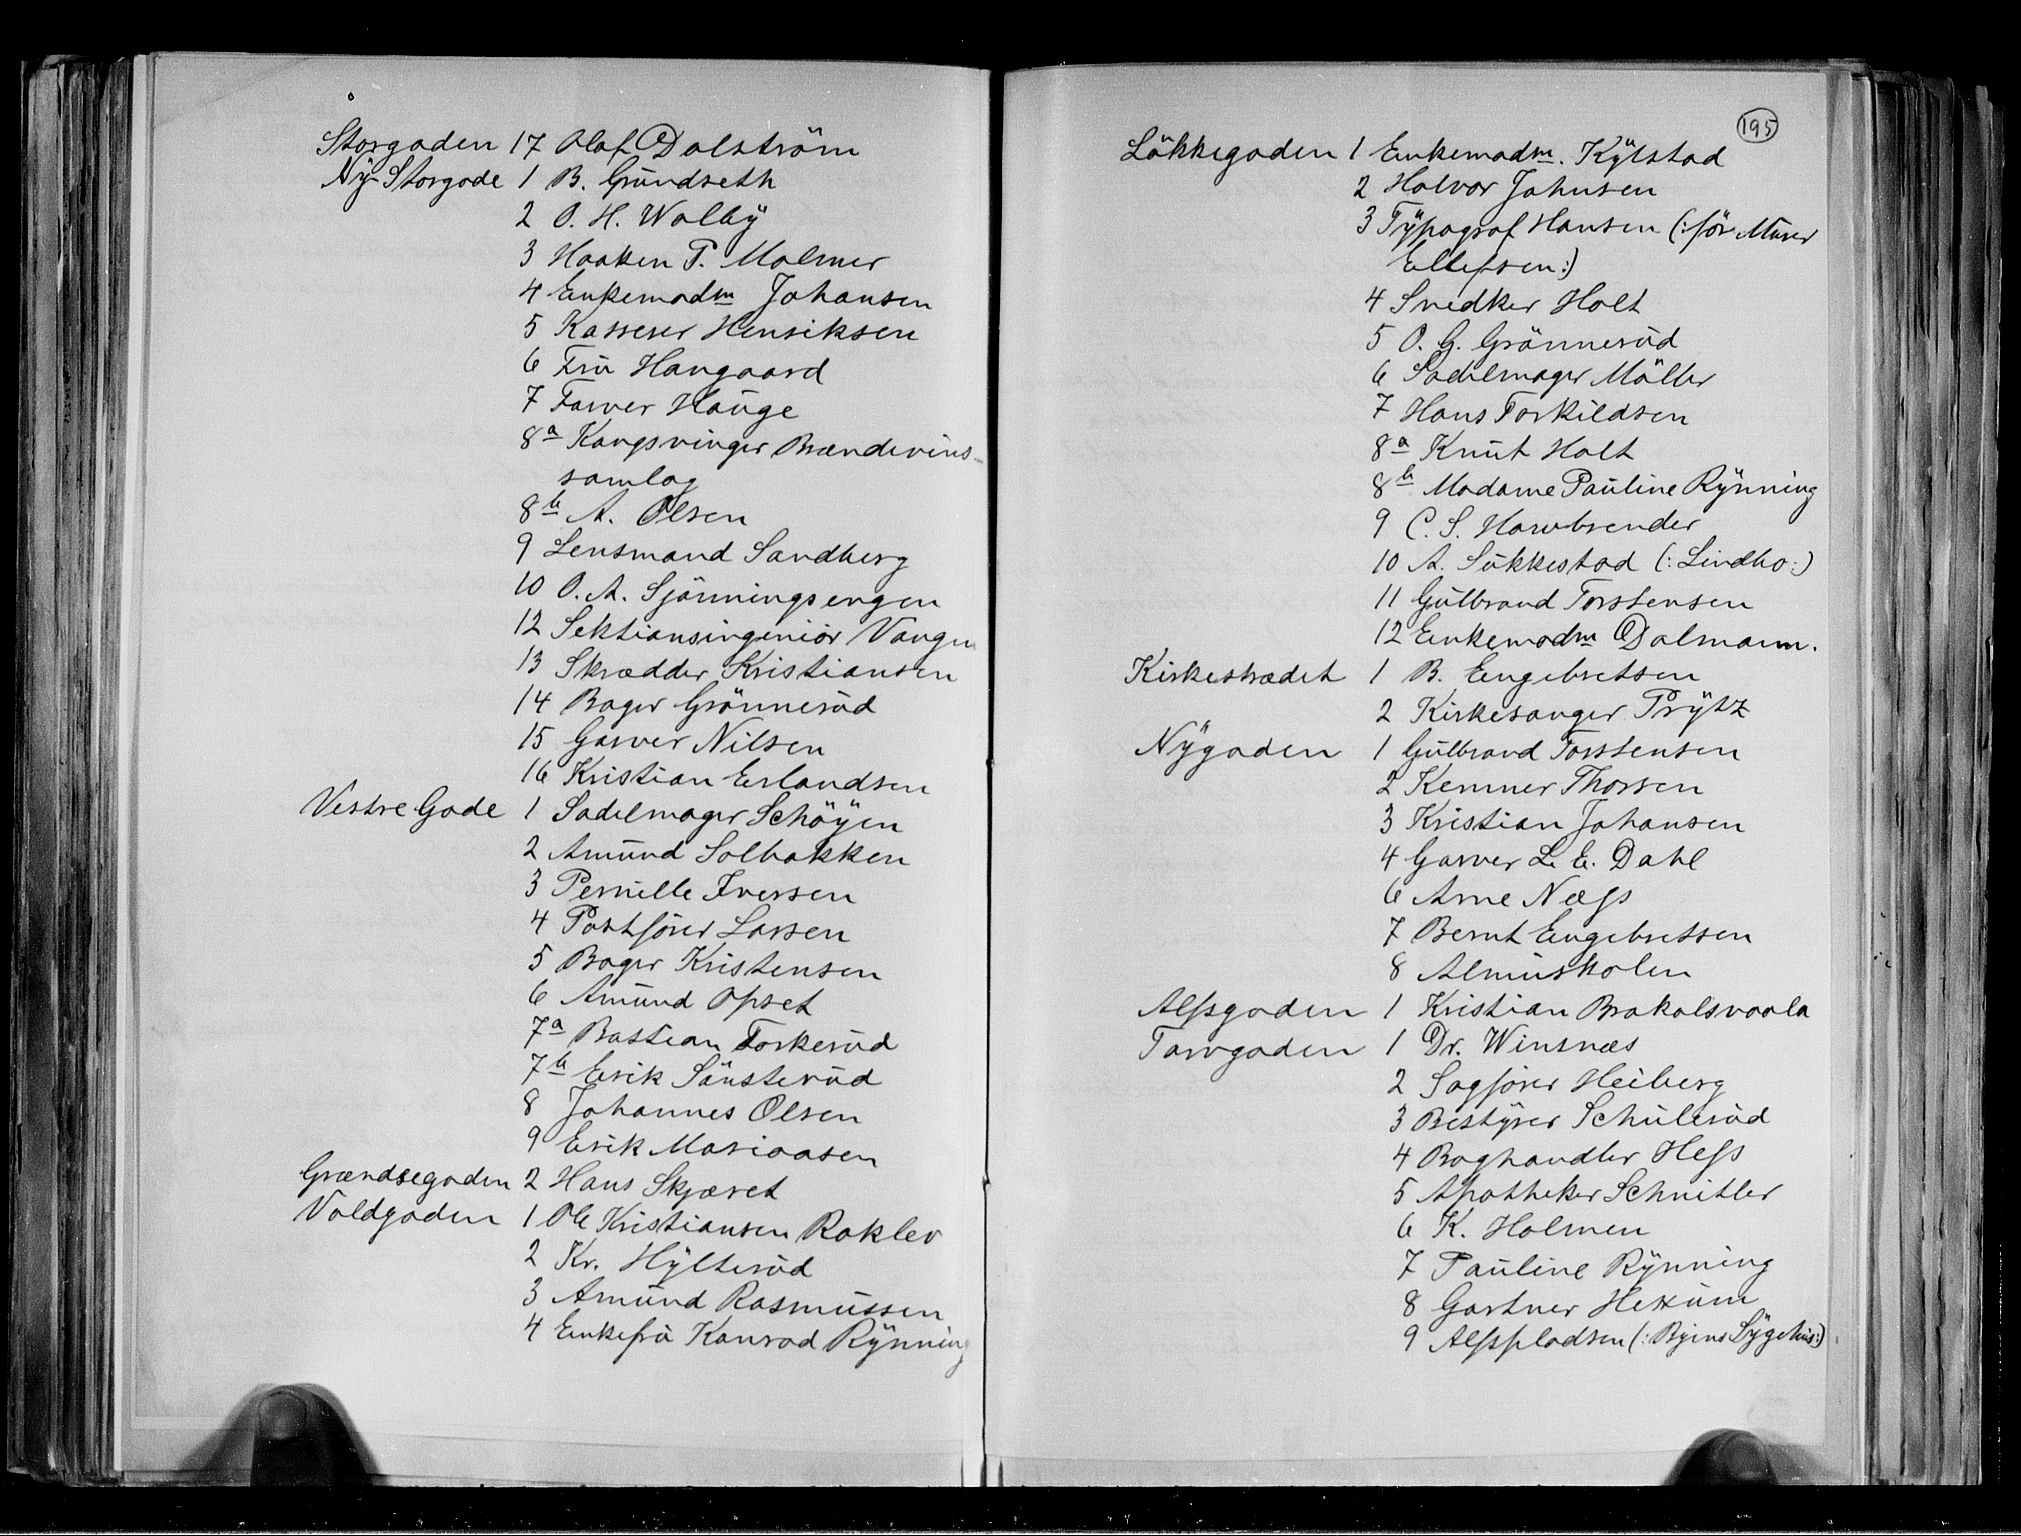 Storgaden 17 Olaf Dalström
Ny Storgade 1 B. Grundseth
2 O. H. Walby
3 Haaken P. Malmer
4 Enkemadm Johansen
5 Kasserer Henriksen
6 Fru Haugaard
7 Farver Hauge
8a Kongsvinger Brændevins-
samlag
8b A. Olsen
9 Lensmand Sandberg
10 O. A. Sjönningsengen
12 Sektionsingeniör Vangen
13 Skrædder Kristiansen
14 Bager Grönnerud
15 Garver Nilsen
16 Kristian Erlandsen
Vestre Gade 1 Sadelmager Schöyen
2 Amund Solbakken
3 Pernille Iversen
4 Postförer Larsen
5 Bager Kristensen
6 Amund Opset
7a Bastian Torkerud
7b Erik Sönsterud
8 Johannes Olsen
9 Erik Mariaasen
Grændsegaden 2 Hans Skjæret
Voldgaden 1 Ole Kristiansen Roklev
2 Kr. Hylterud
3 Amund Rasmussen
4 Enkefru Konrad Rynning
195
Lökkegaden 1 Enkemadm. Kylstad
2 Halvor Johnsen
3 Typograf Hansen (: för Murer
Ellefsen:)
4 Snedker Holt
5 O. G. Grönnerud
6 Sadelmager Möller
7 Hans Torkildsen
8a Knut Holt
8b Madame Pauline Rynning
9 C. S. Hornbrender
10 A. Sukkestad (: Lindbo:)
11 Gulbrand Torstensen
12 Enkemadm Dalmann.
Kirkestrædet 1 B. Engebretsen
2 Kirkesanger Prytz
Nygaden 1 Gulbrand Torstensen
2 Kemner Thorsen
3 Kristian Johansen
4 Garver L. E. Dahl
6 Arne Næss
7 Bernt Engebretsen
8 Almuskolen
Alfsgaden 1 Kristian Brakalsvaala
Torvgaden 1 Dr. Winsnæs
2 Sagförer Heiberg
3 Bestyrer Schulerud
4 Boghandler Hess
5 Apotheker Schnitler
6 K. Holmen
7 Pauline Rynning
8 Gartner Hexum
9 Alfspladsen (: Byens Sygehus:)